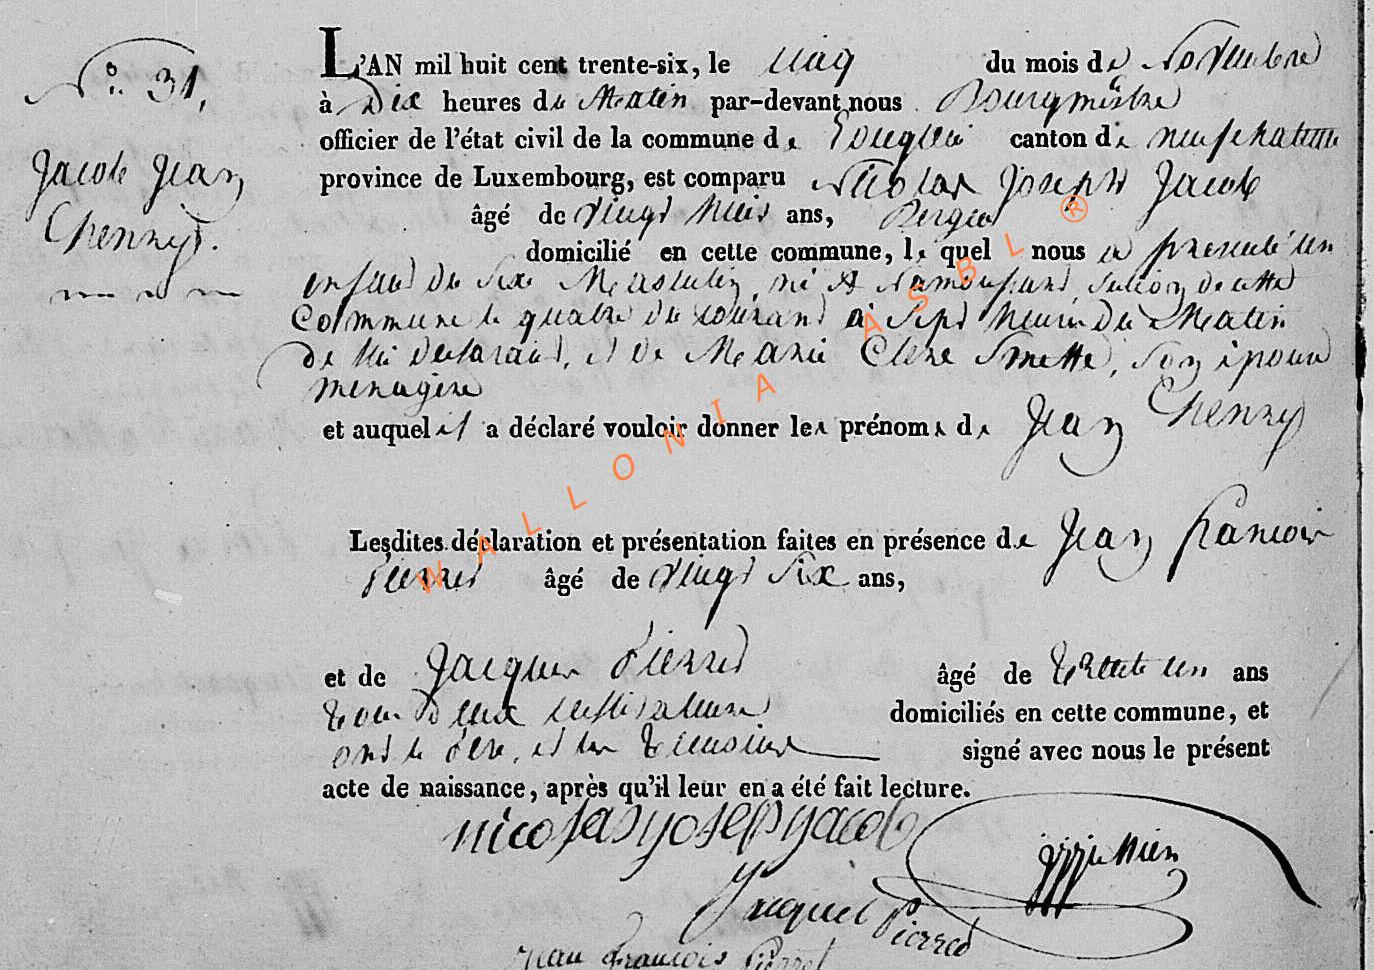 N.o 31,
Jacob Jean
Thenry.
L'AN mil huit cent trente-six, le cinq du mois de Novembre
à Dix heures du Matin par-devant nous Bourgmestre
officier de l'état civil de la commune de canton de neufchateau
province de Luxembourg, est comparu Nicolas Joseph Jacob
âgé de vingt huit ans, Berger
domicilié en cette commune, le quel nous a présenté un
enfant du Sexe Masculin, né à Namoussart, Section de cette
Commune le quatre du courant à Sept heures du Matin
de lui déclarant, et de Marie Smette, son épouse
menagère
et auquel il a déclaré vouloir donner les prénoms de Jean Thenry
Lesdites déclaration et présentation faites en présence de Jean francois
Pierret âgé de vingt Six ans,
et de Jacques Pierret âgé de trente un ans
tous Deux cultivateurs domiciliés en cette commune, et
ont le Père, et les temoins signé avec nous le présent
acte de naissance, après qu'il leur en a été fait lecture.
nicolas joseph jacob
Jacques Pierret
Jean François Pierret
WALLONIA ASBL ®